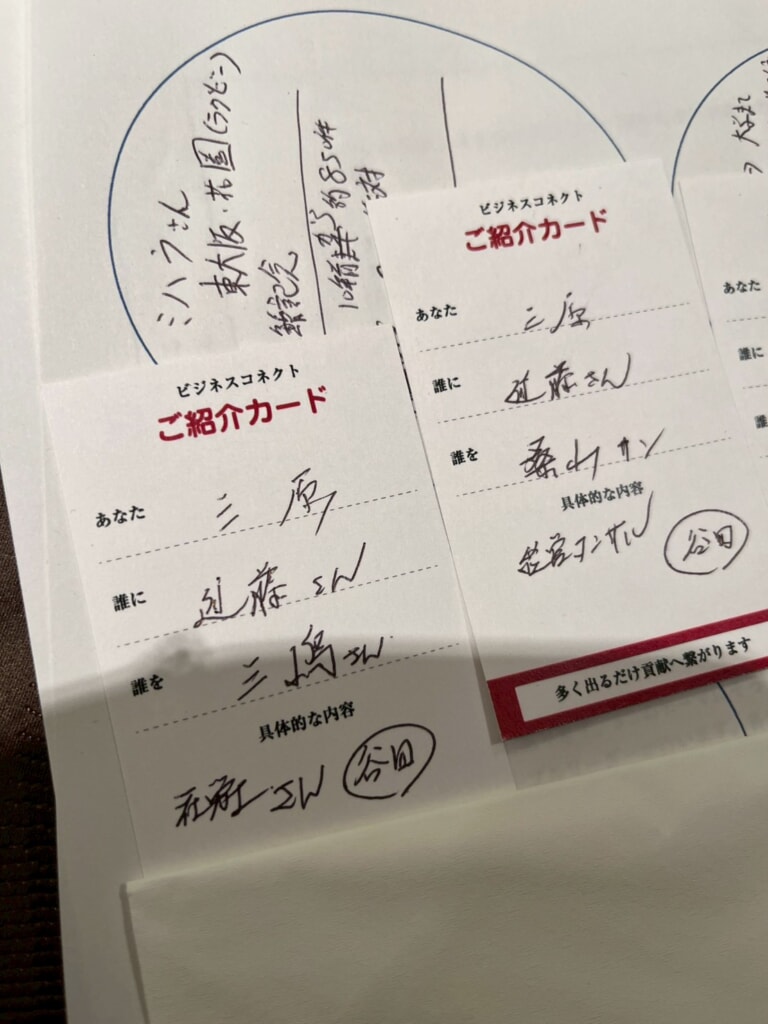 ミハラさん
東大阪・花園(ラグビー)
約850件
ビジネスコネクト
ご紹介カード
あなた 三原
誰に 近藤さん
誰を 三嶋さん
具体的な内容
さん 谷田
ビジネスコネクト
ご紹介カード
あなた 三原
誰に 近藤さん
誰を 桑山サン
具体的な内容
経営コンサル 谷田
多く出るだけ貢献へ繋がります
あなた
誰に
誰を